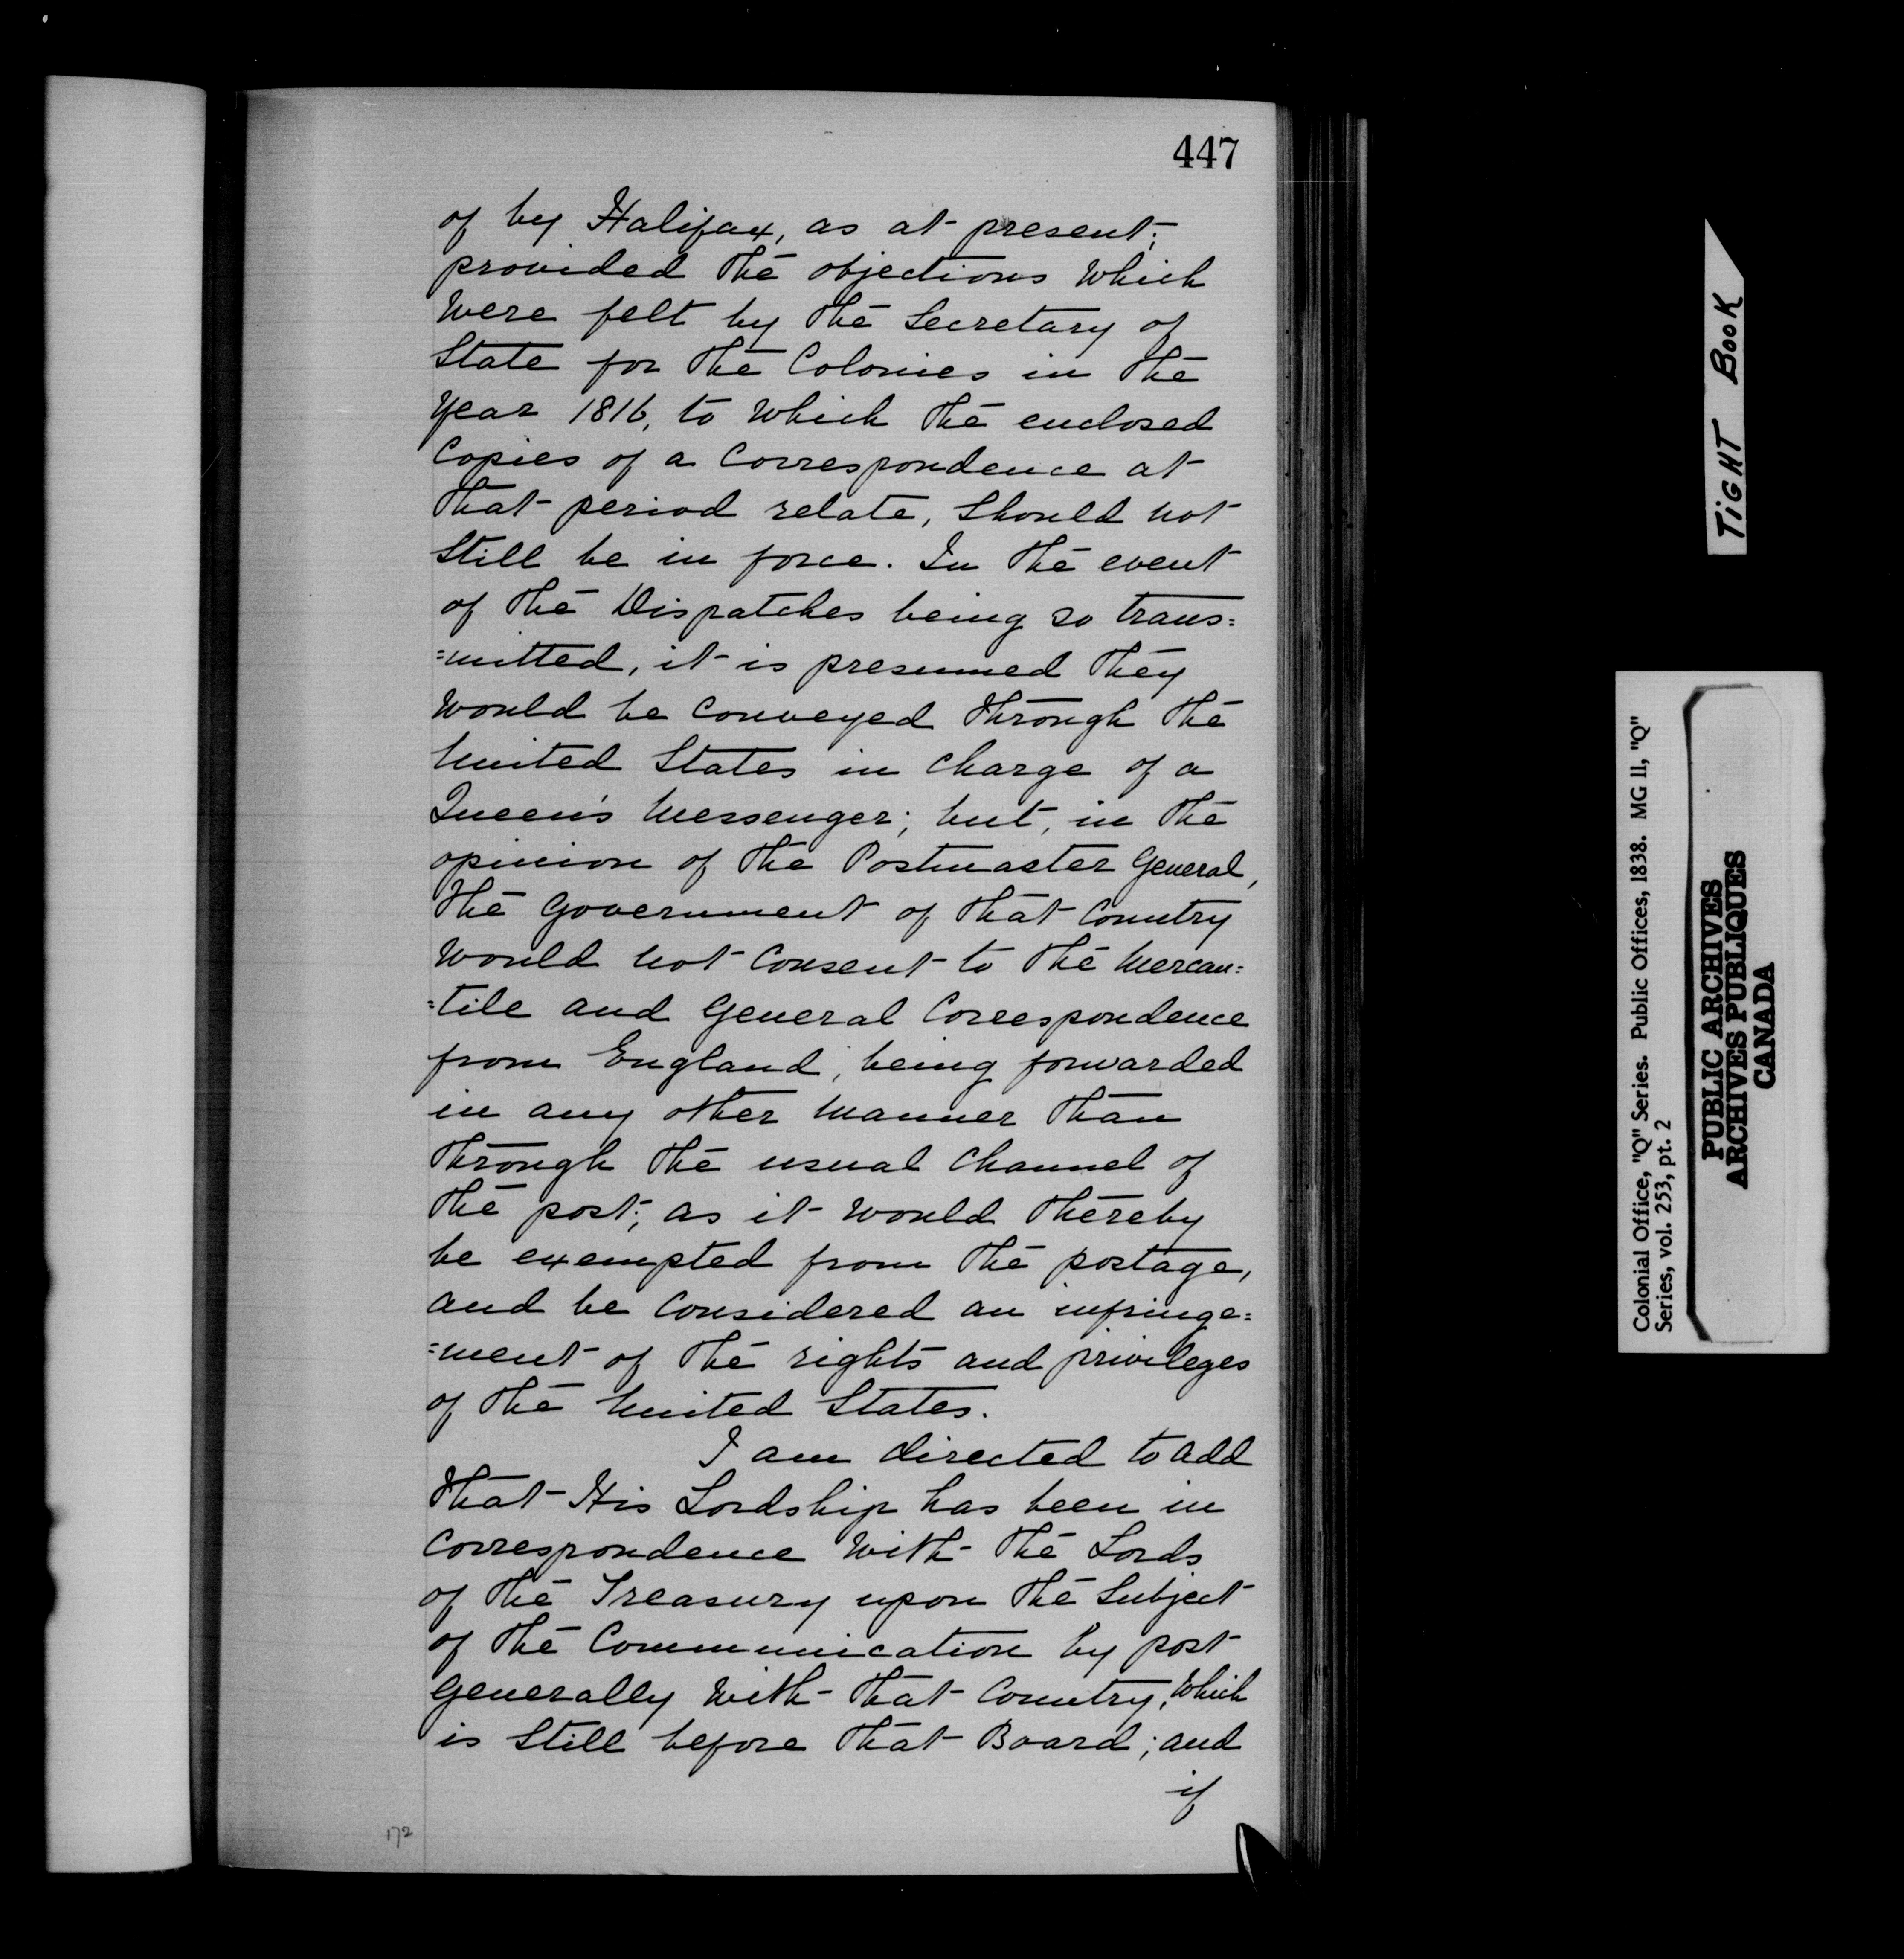 447
of by Halifax, as at present;
provided the objections which
were felt by the Secretary of
State for the Colonies in the
Year 1816, to which the enclosed
Copies of a Correspondence at
that period relate, should not
still be in force. In the event
of the Dispatches being so trans=
=mitted, it is presumed they
would be conveyed through the
United States in charge of a
Queen's Messenger; but, in the
opinion of the Postmaster General,
the Government of that Country
would not consent to the Mercan=
=tile and General Correspondence
from England, being forwarded
in any other manner than
through the usual channel of
the post; as it would thereby
be exempted from the postage,
and be considered an infringe=
=ment of the rights and privileges
of the United States.
I am directed to add
that His Lordship has been in
correspondence with the Lords
of the Treasury upon the Subject
of the Communication by post
generally with that Country, which
is still before that Board; and
if
172
TIGHT BOOK
Colonial Office, "Q" Series. Public Offices, 1838. MG 11, "Q"
Series, vol. 253, pt. 2
PUBLIC ARCHIVES
ARCHIVES PUBLIQUES
CANADA